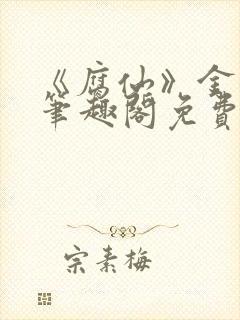 《腐仙》全
笔趣阁免费
宗素梅